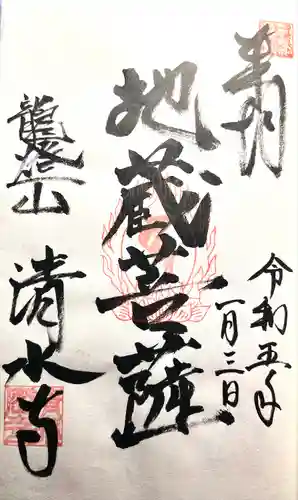 奉拝
令和五年
一月三日
地蔵菩薩
清水寺